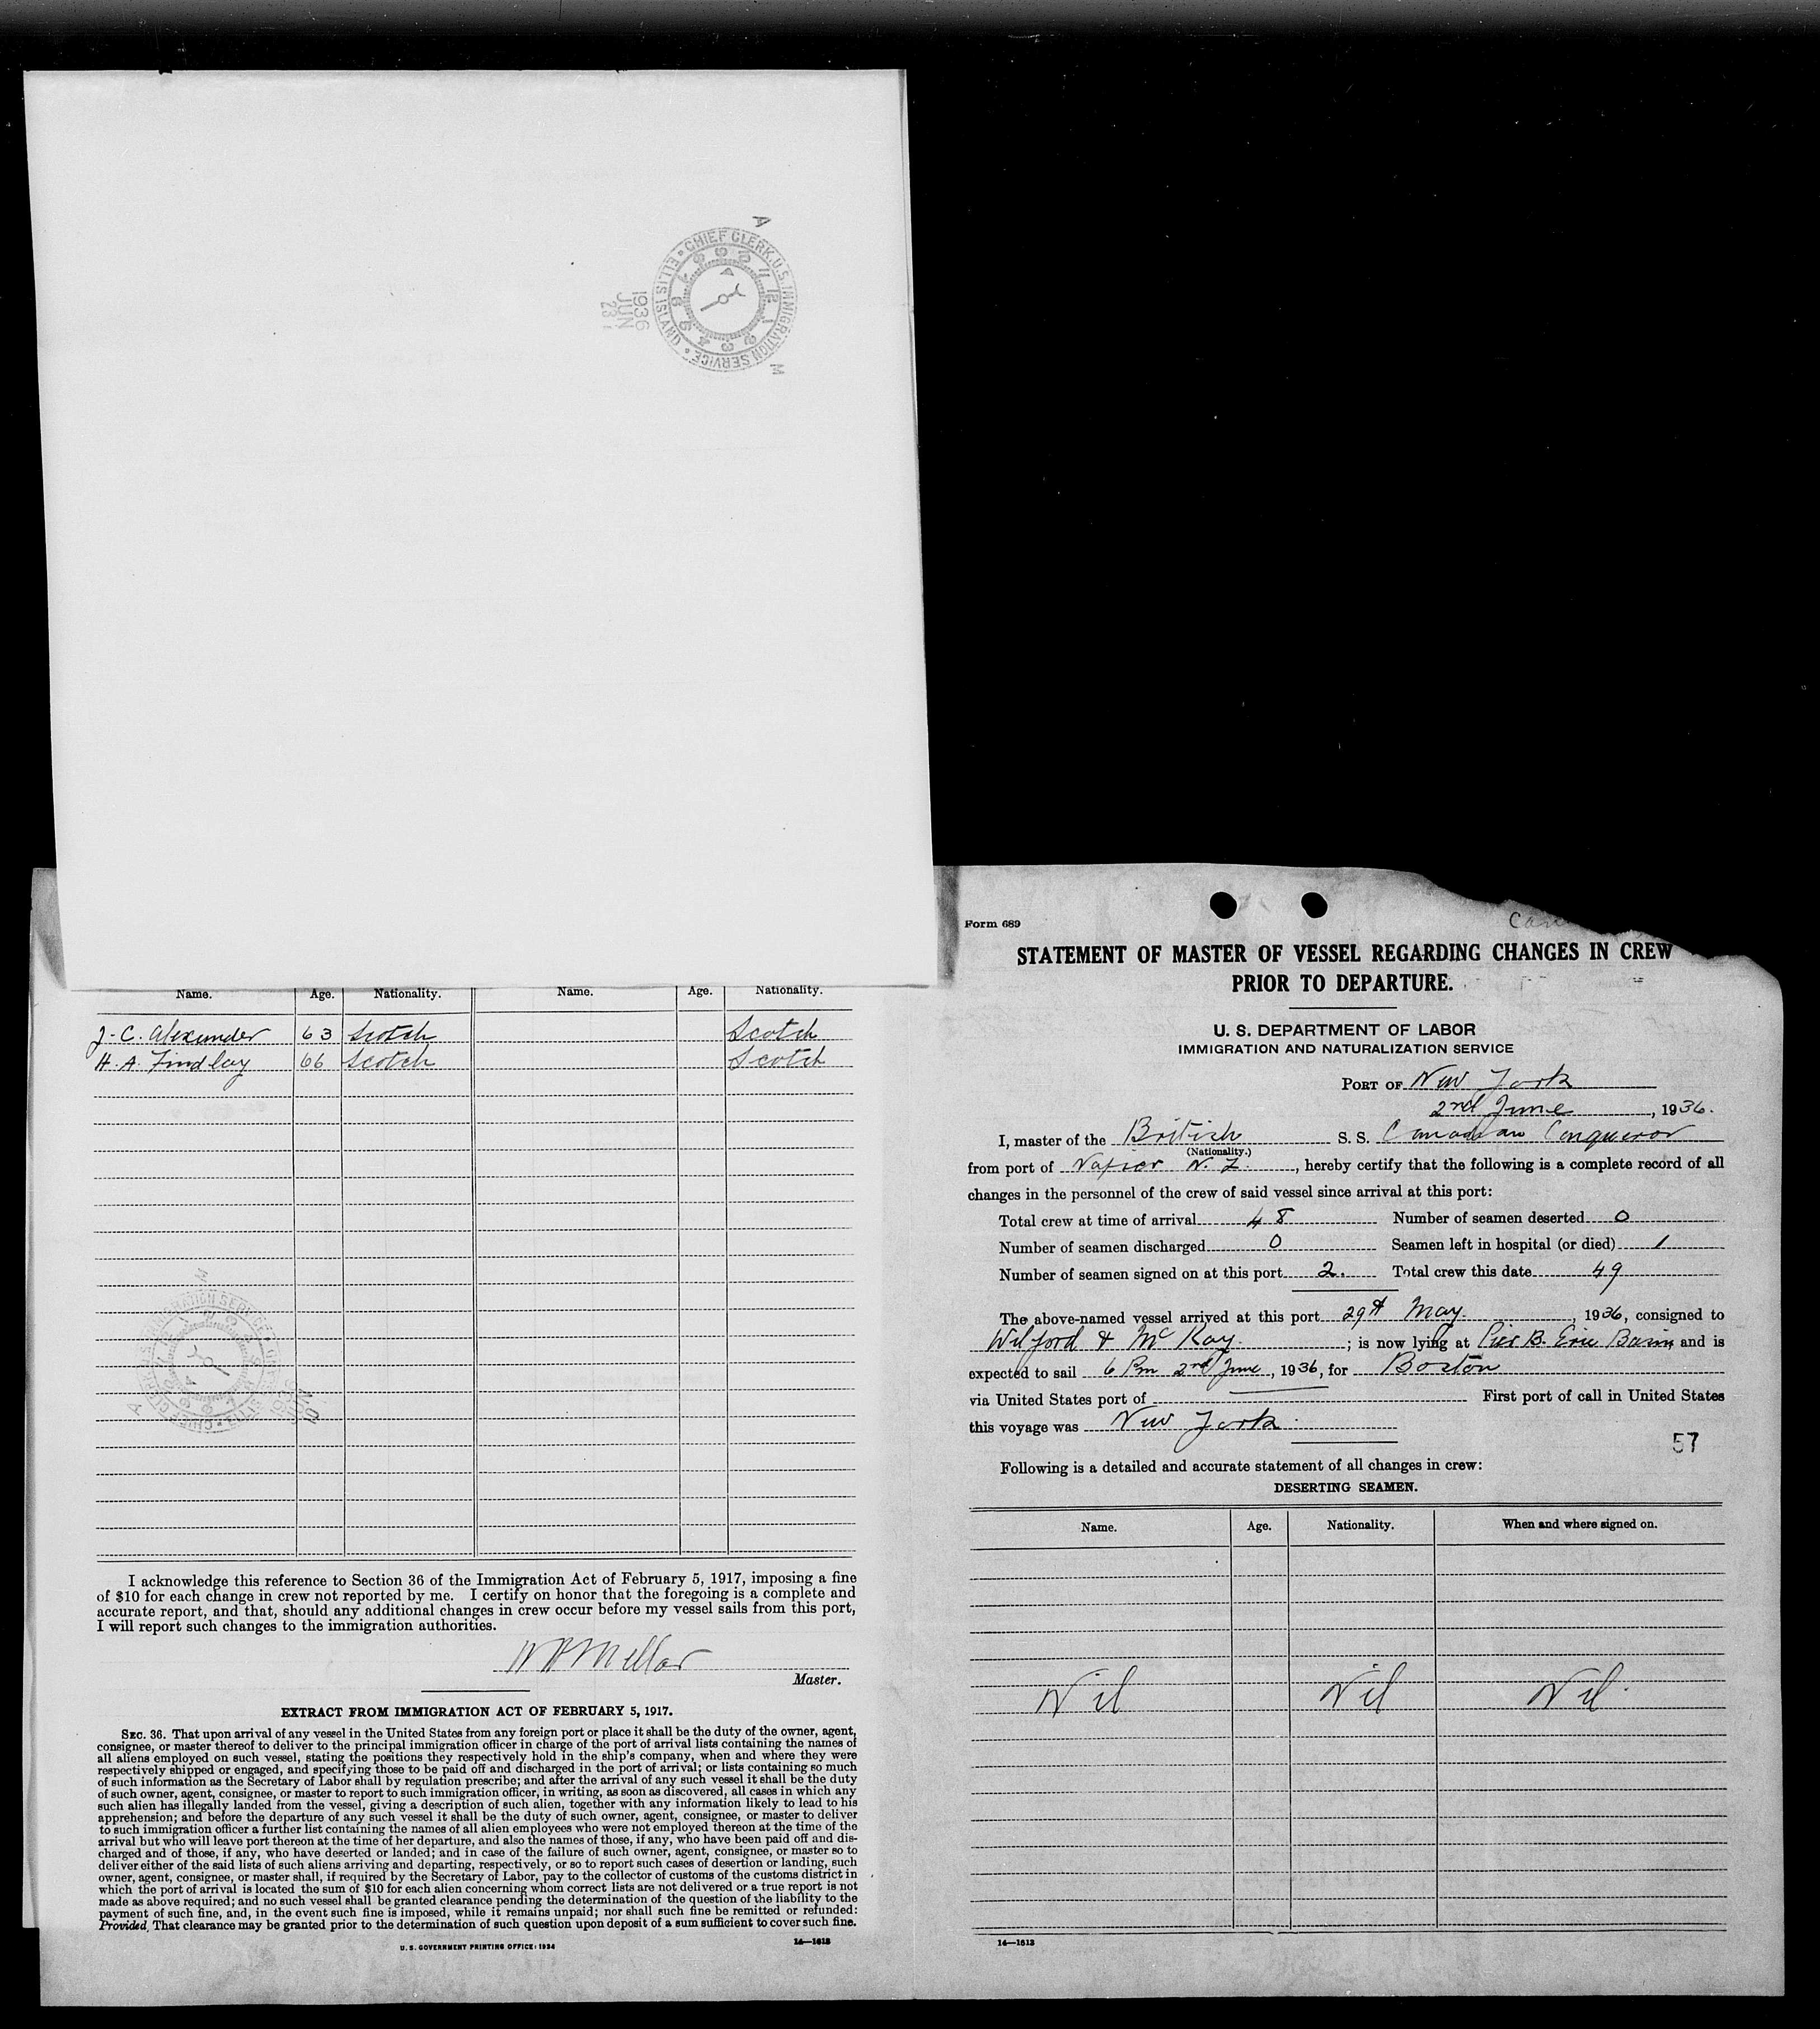 CHIEF CLERK, U.S. IMMIGRATION SERVICE • ELLIS ISLAND •
A
M
1936
JUN
23
Name. Age. Nationality. Name. Age. Nationality.
J. C. Alexander 63 Scotch Scotch
H. A. Findlay 66 Scotch Scotch
I acknowledge this reference to Section 36 of the Immigration Act of February 5, 1917, imposing a fine
of $10 for each change in crew not reported by me. I certify on honor that the foregoing is a complete and
accurate report, and that, should any additional changes in crew occur before my vessel sails from this port,
I will report such changes to the immigration authorities.
Mellor
Master.
EXTRACT FROM IMMIGRATION ACT OF FEBRUARY 5, 1917.
SEC. 36. That upon arrival of any vessel in the United States from any foreign port or place it shall be the duty of the owner, agent,
consignee, or master thereof to deliver to the principal immigration officer in charge of the port of arrival lists containing the names of
all aliens employed on such vessel, stating the positions they respectively hold in the ship's company, when and where they were
respectively shipped or engaged, and specifying those to be paid off and discharged in the port of arrival; or lists containing so much
of such information as the Secretary of Labor shall by regulation prescribe; and after the arrival of any such vessel it shall be the duty
of such owner, agent, consignee, or master to report to such immigration officer, in writing, as soon as discovered, all cases in which any
such alien has illegally landed from the vessel, giving a description of such alien, together with any information likely to lead to his
apprehension; and before the departure of any such vessel it shall be the duty of such owner, agent, consignee, or master to deliver
to such immigration officer a further list containing the names of all alien employees who were not employed thereon at the time of the
arrival but who will leave port thereon at the time of her departure, and also the names of those, if any, who have been paid off and dis-
charged and of those, if any, who have deserted or landed; and in case of the failure of such owner, agent, consignee, or master so to
deliver either of the said lists of such aliens arriving and departing, respectively, or so to report such cases of desertion or landing, such
owner, agent, consignee, or master shall, if required by the Secretary of Labor, pay to the collector of customs of the customs district in
which the port of arrival is located the sum of $10 for each alien concerning whom correct lists are not delivered or a true report is not
made as above required; and no such vessel shall be granted clearance pending the determination of the question of the liability to the
payment of such fine, and, in the event such fine is imposed, while it remains unpaid; nor shall such fine be remitted or refunded:
Provided, That clearance may be granted prior to the determination of such question upon deposit of a sum sufficient to cover such fine.
U. S. GOVERNMENT PRINTING OFFICE: 1934
14—1613
Form 689
STATEMENT OF MASTER OF VESSEL REGARDING CHANGES IN CREW
PRIOR TO DEPARTURE.
U. S. DEPARTMENT OF LABOR
IMMIGRATION AND NATURALIZATION SERVICE
PORT OF New York
2nd June, 1936.
I, master of the British S. S. Canadian Conqueror
(Nationality.)
from port of Napier N. Z., hereby certify that the following is a complete record of all
changes in the personnel of the crew of said vessel since arrival at this port:
Total crew at time of arrival 48 Number of seamen deserted 0
Number of seamen discharged 0 Seamen left in hospital (or died) 1
Number of seamen signed on at this port 2. Total crew this date 49
The above-named vessel arrived at this port 29th May. 1936, consigned to
Wilford & McKay; is now lying at Pier B. Erie Basin and is
expected to sail 6 Pm 2nd June, 1936, for Boston
via United States port of First port of call in United States
this voyage was New York.
57
Following is a detailed and accurate statement of all changes in crew:
DESERTING SEAMEN.
Name. Age. Nationality. When and where signed on.
Nil Nil Nil.
14—1613